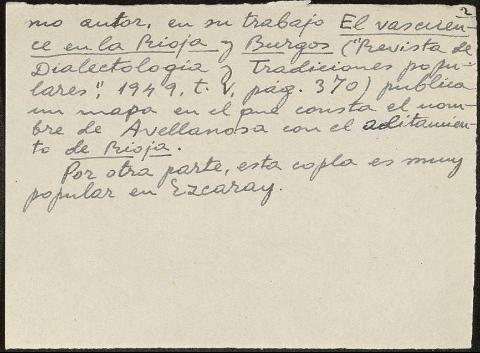 2
mo autor, en su trabajo El vascuen-
ce en la Rioja y Burgos ("Revista de
Dialectología y Tradiciones popu-
lares", 1949, t. V, pág. 370) publica
un mapa en el que consta el nom-
bre de Avellanosa con el aditamien-
to de Rioja.
Por otra parte, esta copla es muy
popular en Ezcaray.